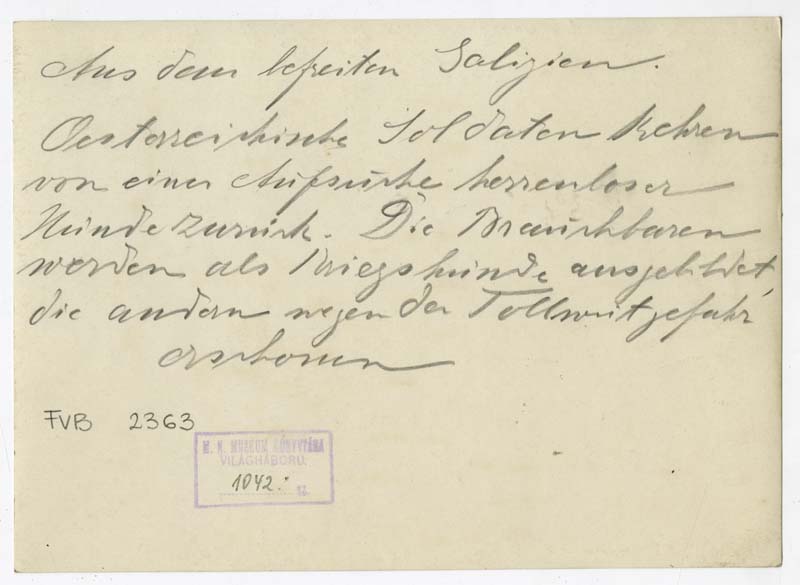 Aus dem befreiten Galizien.
Oesterreichische Soldaten kehren
von einer Aufsuche herrenloser
Hunde zurück. Die Brauchbaren
werden als Kriegshunde ausgebildet,
die andern wegen der Tollwutgefahr
erschossen
FVB 2363
M. N. MUZEUM KÖNYVTÁRA
VILÁGHÁBORU.
1042.